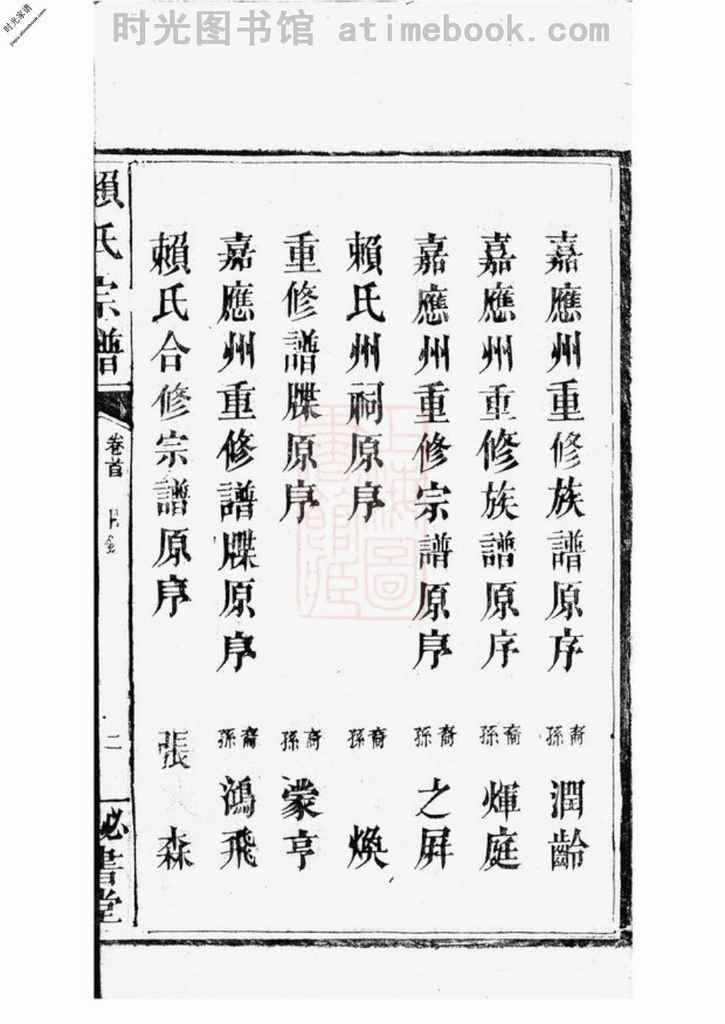 时光图书馆 atimebook.com
时光家谱
嘉應州重修族譜原序 裔孫 潤齡
嘉應州重修族譜原序 裔孫 煇庭
嘉應州重修宗譜原序 裔孫 之屏
賴氏州祠原序 裔孫 煥
重修譜牒原序 裔孫 蒙亨
嘉應州重修譜牒原序 裔孫 鴻飛
賴氏合修宗譜原序 張森
賴氏宗譜 卷首 目錄 二 必書堂